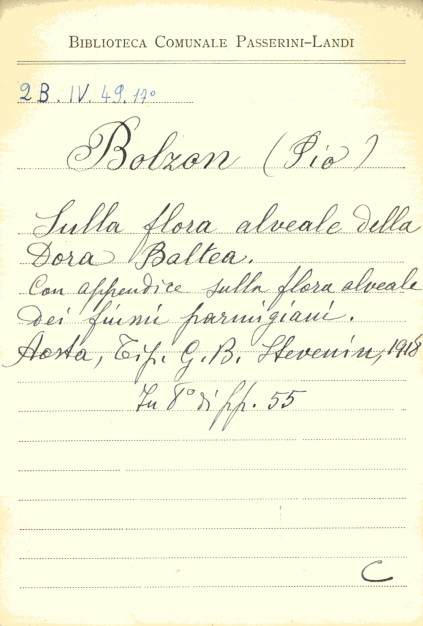 BIBLIOTECA COMUNALE PASSERINI-LANDI
2B. IV. 49. 17°
Bolzon (Pio)
Sulla flora alveale della
Dora Baltea.
Con appendice sulla flora alveale
dei fiumi parmigiani.
Aosta, Tip. G. B. Stevenin, 1918
In 8° di pp. 55
C